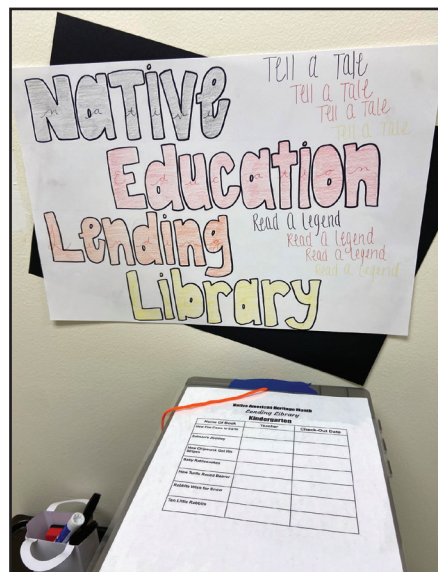 Native
Tell a Tale
Tell a Tale
Tell a Tale
Tell a Tale
Education
Lending
Read a legend
Read a legend
Read a legend
Read a legend
Library
Native American Heritage Month
Lending Library
Kindergarten
Name Of Book Teacher Check-Out Date
How Fire Came to Earth
How Chipmunk Got His Stripes
Baby Rattlesnake
How Turtle Raced Beaver
Rabbits Wish for Snow
Ten Little Rabbits